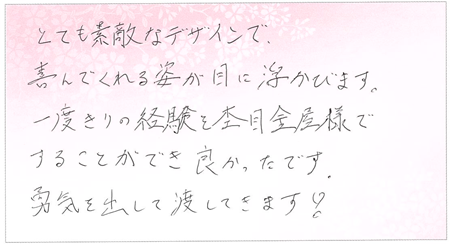 とても素敵なデザインで、
喜んでくれる姿が目に浮かびます。
一度きりの経験を杢目金屋様で
することができ良かったです。
勇気を出して渡してきます!!